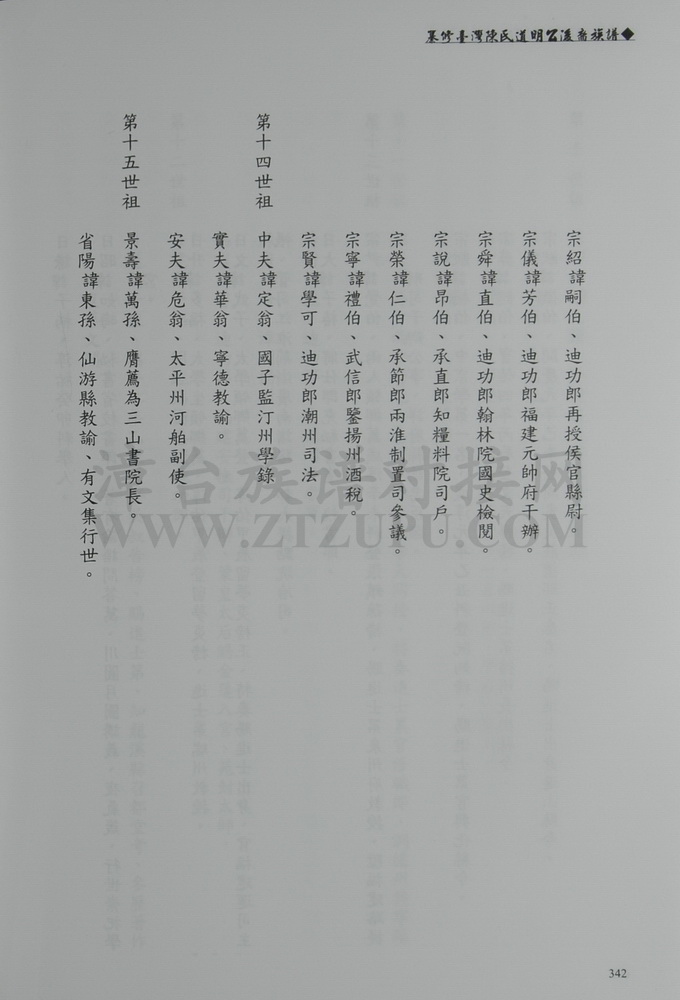 纂修臺灣陳氏道明公派裔族譜◆
宗紹諱嗣伯、迪功郎再授侯官縣尉。
宗儀諱芳伯、迪功郎福建元帥府干辦。
宗舜諱直伯、迪功郎翰林院國史檢閱。
宗說諱昂伯、承直郎知糧料院司戶。
宗榮諱仁伯、承節郎兩淮制置司參議。
宗寧諱禮伯、武信郎鑒揚州酒稅。
宗賢諱學可、迪功郎潮州司法。
第十四世祖 中夫諱定翁、國子監汀州學錄
實夫諱華翁、寧德教諭。
安夫諱危翁、太平州河舶副使。
第十五世祖 景壽諱萬孫、膺薦為三山書院長。
省陽諱東孫、仙游縣教諭、有文集行世。
漳台族谱对接网
WWW.ZTZUPU.COM
342